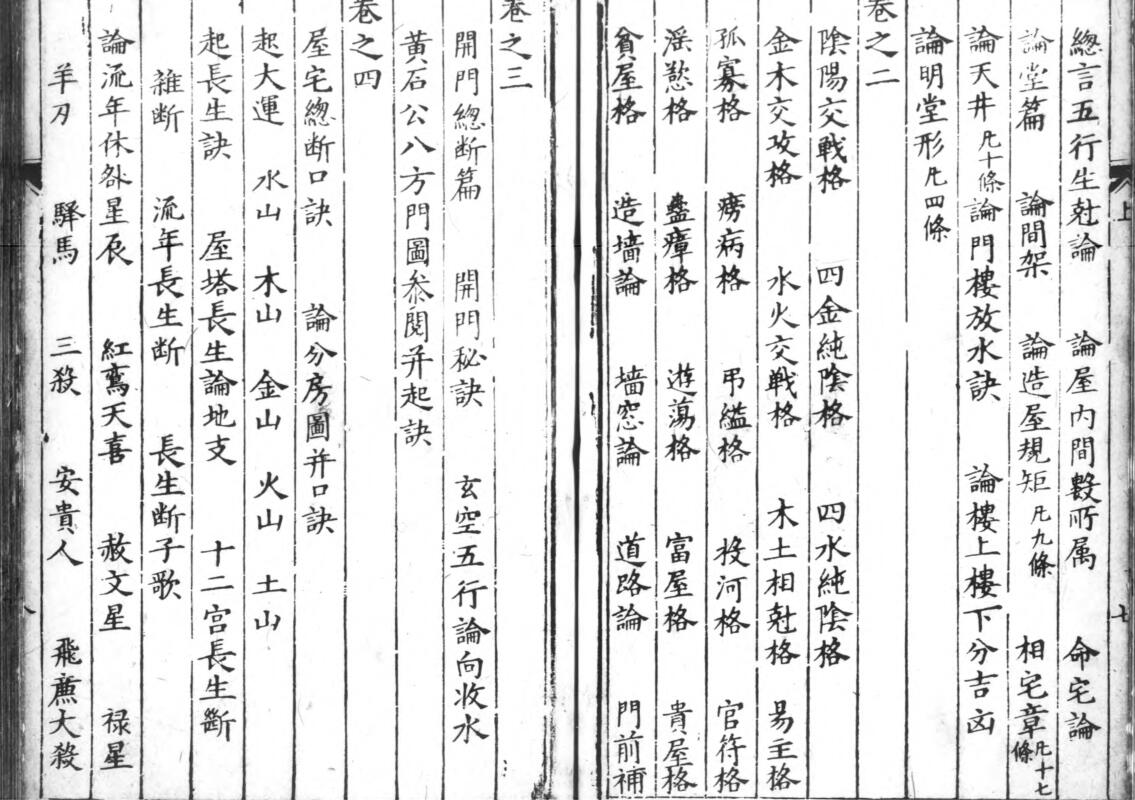 總言五行生尅論　論屋内間數所属　命宅論
論堂篇　論間架　論造屋規矩凡九條　相宅章凡十七條
論天井凡十條論門樓放水訣　論樓上樓下分吉凶
論明堂形凡四條
卷之二
陰陽交戰格　四金純陰格　四水純陰格
金木交攻格　水火交戰格　木土相尅格　易主格
孤寡格　癆病格　弔縊格　投河格　官符格
淫慾格　蠱瘴格　遊蕩格　富屋格　貴屋格
貧屋格　造墙論　墙窓論　道路論　門前補
上
七
卷之三
開門總断篇　開門秘訣　玄空五行論向收水
黃石公八方門圖叅閱并起訣
卷之四
屋宅總断口訣　論分房圖并口訣
起大運　水山　木山　金山　火山　土山
起長生訣　屋塔長生論地支　十二宫長生斷
雜断　流年長生断　長生断子歌
論流年休咎星辰　紅鸞天喜　赦文星　禄星
羊刃　驛馬　三殺　安貴人　飛廉大殺